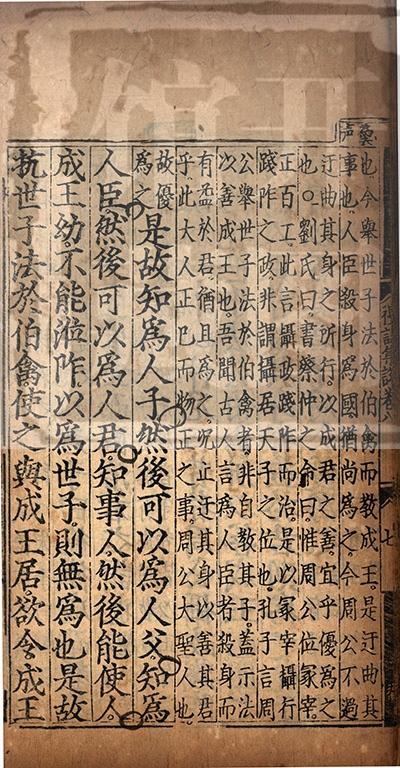 也今舉世子法於伯禽而教成王。是迂曲其
事也。人臣殺身為國。猶尚為之。今周公不過
迂曲其身之所行。以成君之善。宜乎優為之
也。○劉氏曰。書蔡仲之命曰。惟周公位冢宰。
正百工。此言攝政踐阼而治。是以冢宰攝行
踐阼之政。非謂攝居天子之位也。孔子言周
公舉世子法於伯禽者。非自教其子。蓋示法
以善成王也。吾聞古人言為人臣者。殺身而
有益於君。猶且為之。况止迂其身以善其君
乎。此大人正己而物正之事。周公大聖人也。
故優
為之
是故知爲人子。然後可以爲人父。知爲
人臣。然後可以爲人君。知事人。然後能使人。
成王幼。不能涖阼。以爲世子。則無爲也。是故
抗世子法於伯禽。使之與成王居。欲令成王
七